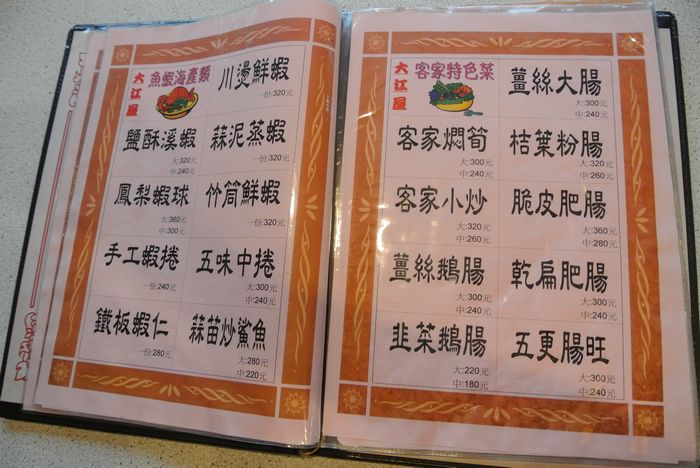 大江屋
魚蝦海產類
川燙鮮蝦
一份:320元
鹽酥溪蝦
大:320元
中:240元
蒜泥蒸蝦
一份:320元
鳳梨蝦球
大:360元
中:300元
竹筒鮮蝦
一份:320元
手工蝦捲
一份:240元
五味中捲
大:300元
中:240元
鐵板蝦仁
一份:280元
蒜苗炒鯊魚
大:280元
中:220元
大江屋
客家特色菜
薑絲大腸
大:300元
中:240元
客家燜筍
大:300元
中:240元
桔葉粉腸
大:320元
中:260元
客家小炒
大:320元
中:260元
脆皮肥腸
大:360元
中:280元
薑絲鵝腸
大:300元
中:240元
乾扁肥腸
大:300元
中:240元
韭菜鵝腸
大:220元
中:180元
五更腸旺
大:300元
中:240元